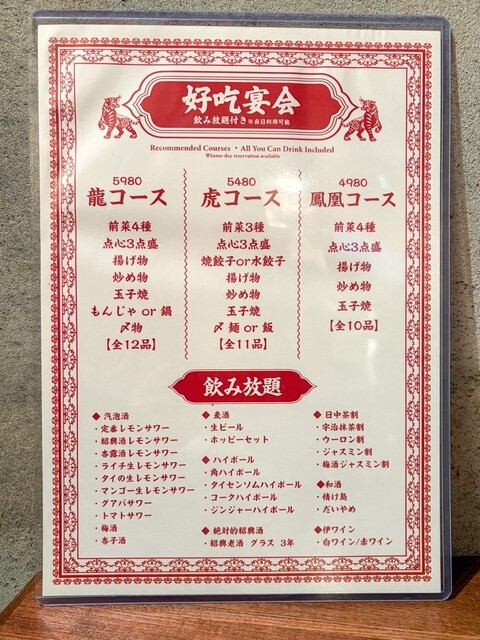 好吃宴会
飲み放題付き※当日利用可能
Recommended Courses ・All You Can Drink Included
※Same-day reservation available
5980
龍コース
前菜4種
点心3点盛
揚げ物
炒め物
玉子焼
もんじゃ or 鍋
〆物
【全12品】
5480
虎コース
前菜3種
点心3点盛
焼餃子or水餃子
揚げ物
炒め物
玉子焼
〆 麺 or 飯
【全11品】
4980
鳳凰コース
前菜4種
点心3点盛
揚げ物
炒め物
玉子焼
【全10品】
飲み放題
◆ 汽泡酒
・定番レモンサワー
・紹興酒レモンサワー
・杏露酒レモンサワー
・ライチ生レモンサワー
・タイの生レモンサワー
・マンゴー生レモンサワー
・グアバサワー
・トマトサワー
・梅酒
・杏子酒
◆ 麦酒
・生ビール
・ホッピーセット
◆ ハイボール
・角ハイボール
・タイセンソムハイボール
・コークハイボール
・ジンジャーハイボール
◆ 絶対的紹興酒
・紹興老酒 グラス 3年
◆ 日中茶割
・宇治抹茶割
・ウーロン割
・ジャスミン割
・梅酒ジャスミン割
◆和酒
・情け島
・だいやめ
◆伊ワイン
・白ワイン/赤ワイン